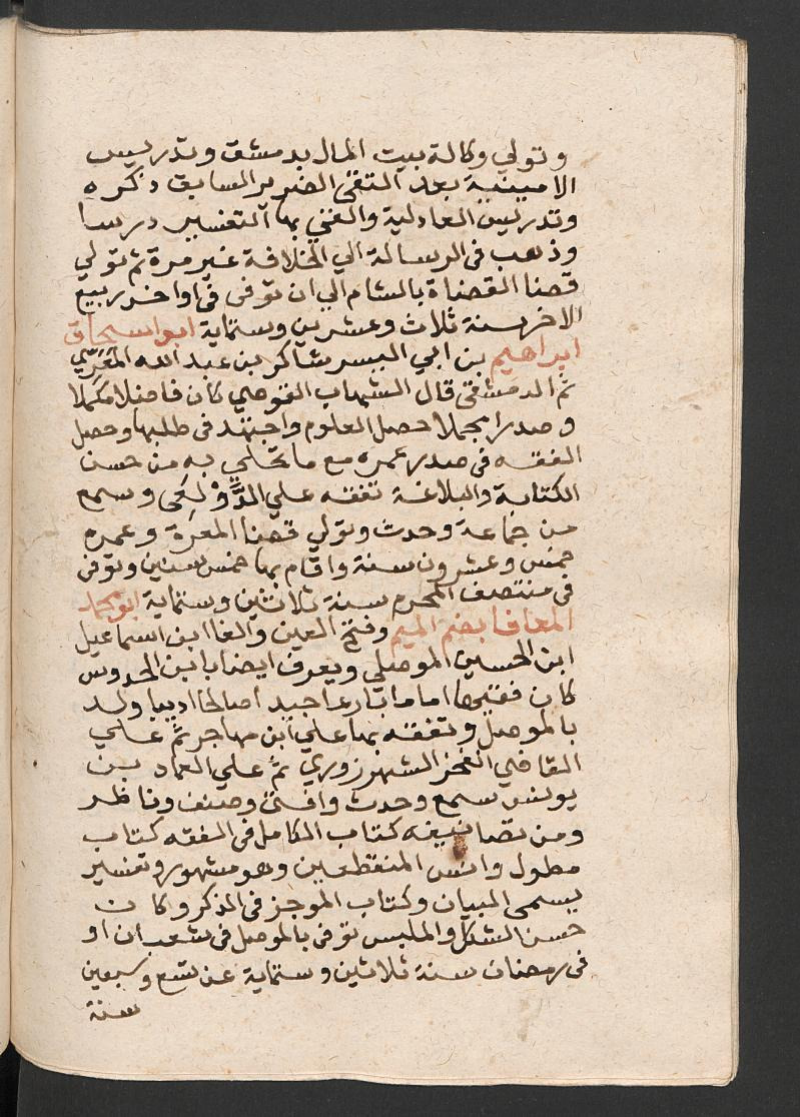 وتولي وكالة بيت المال بدمشق وتدريس
الامينية بعد التقى الضرير السابق ذكره
وتدريس العادلية والقي بها التفسير درسا
وذهب فى الرسالة الي الخلافة غير مرة ثم تولي
قضا القضاة بالشام الي ان توفى فى اواخر ربيع
الاخر سنة ثلاث وعشرين وستماية ابو اسحاق
ابراهيم بن ابي اليسر شاكر بن عبد الله المعَرّيّ
ثم الدمشقى قال الشهاب القوصي كان فاضلا مكملا
وصدرا مجملا حصل العلوم واجتهد فى طلبها وحصل
الفقه فى صدر عمره مع ما تحلي به من حسن
الكتابة والبلاغة تفقه علي الدَّوْلَعِى وسمع
من جماعة وحدث وتولي قضا المعرة وعمره
خمس وعشرون سنة واقام بها خمس سنين وتوفى
فى منتصف المحرم سنة ثلاثين وستماية ابو محمد
المعافا بضم الميم وفتح العين والفا ابن اسماعيل
ابن الحسين الموصلي ويعرف ايضا بابن الحدوس
كان فقيها اماما بارعا جيدا صالحا اديبا ولد
بالموصل وتفقه بها علي ابن مهاجر ثم علي
القاضي الفخر الشهرزوري ثم علي العماد بن
يونس سمع وحدث وافتى وصنف وناظر
ومن تصانيفه كتاب الكامل فى الفقه كتاب
مطول وانس المنقطعين وهو مشهور وتفسير
يسمى البيان وكتاب الموجز فى الذكر وكان
حسن الشكل والملبس توفى بالموصل فى شعبان او
فى رمضان سنة ثلاثين وستماية عن تسع وسبعين
سنة